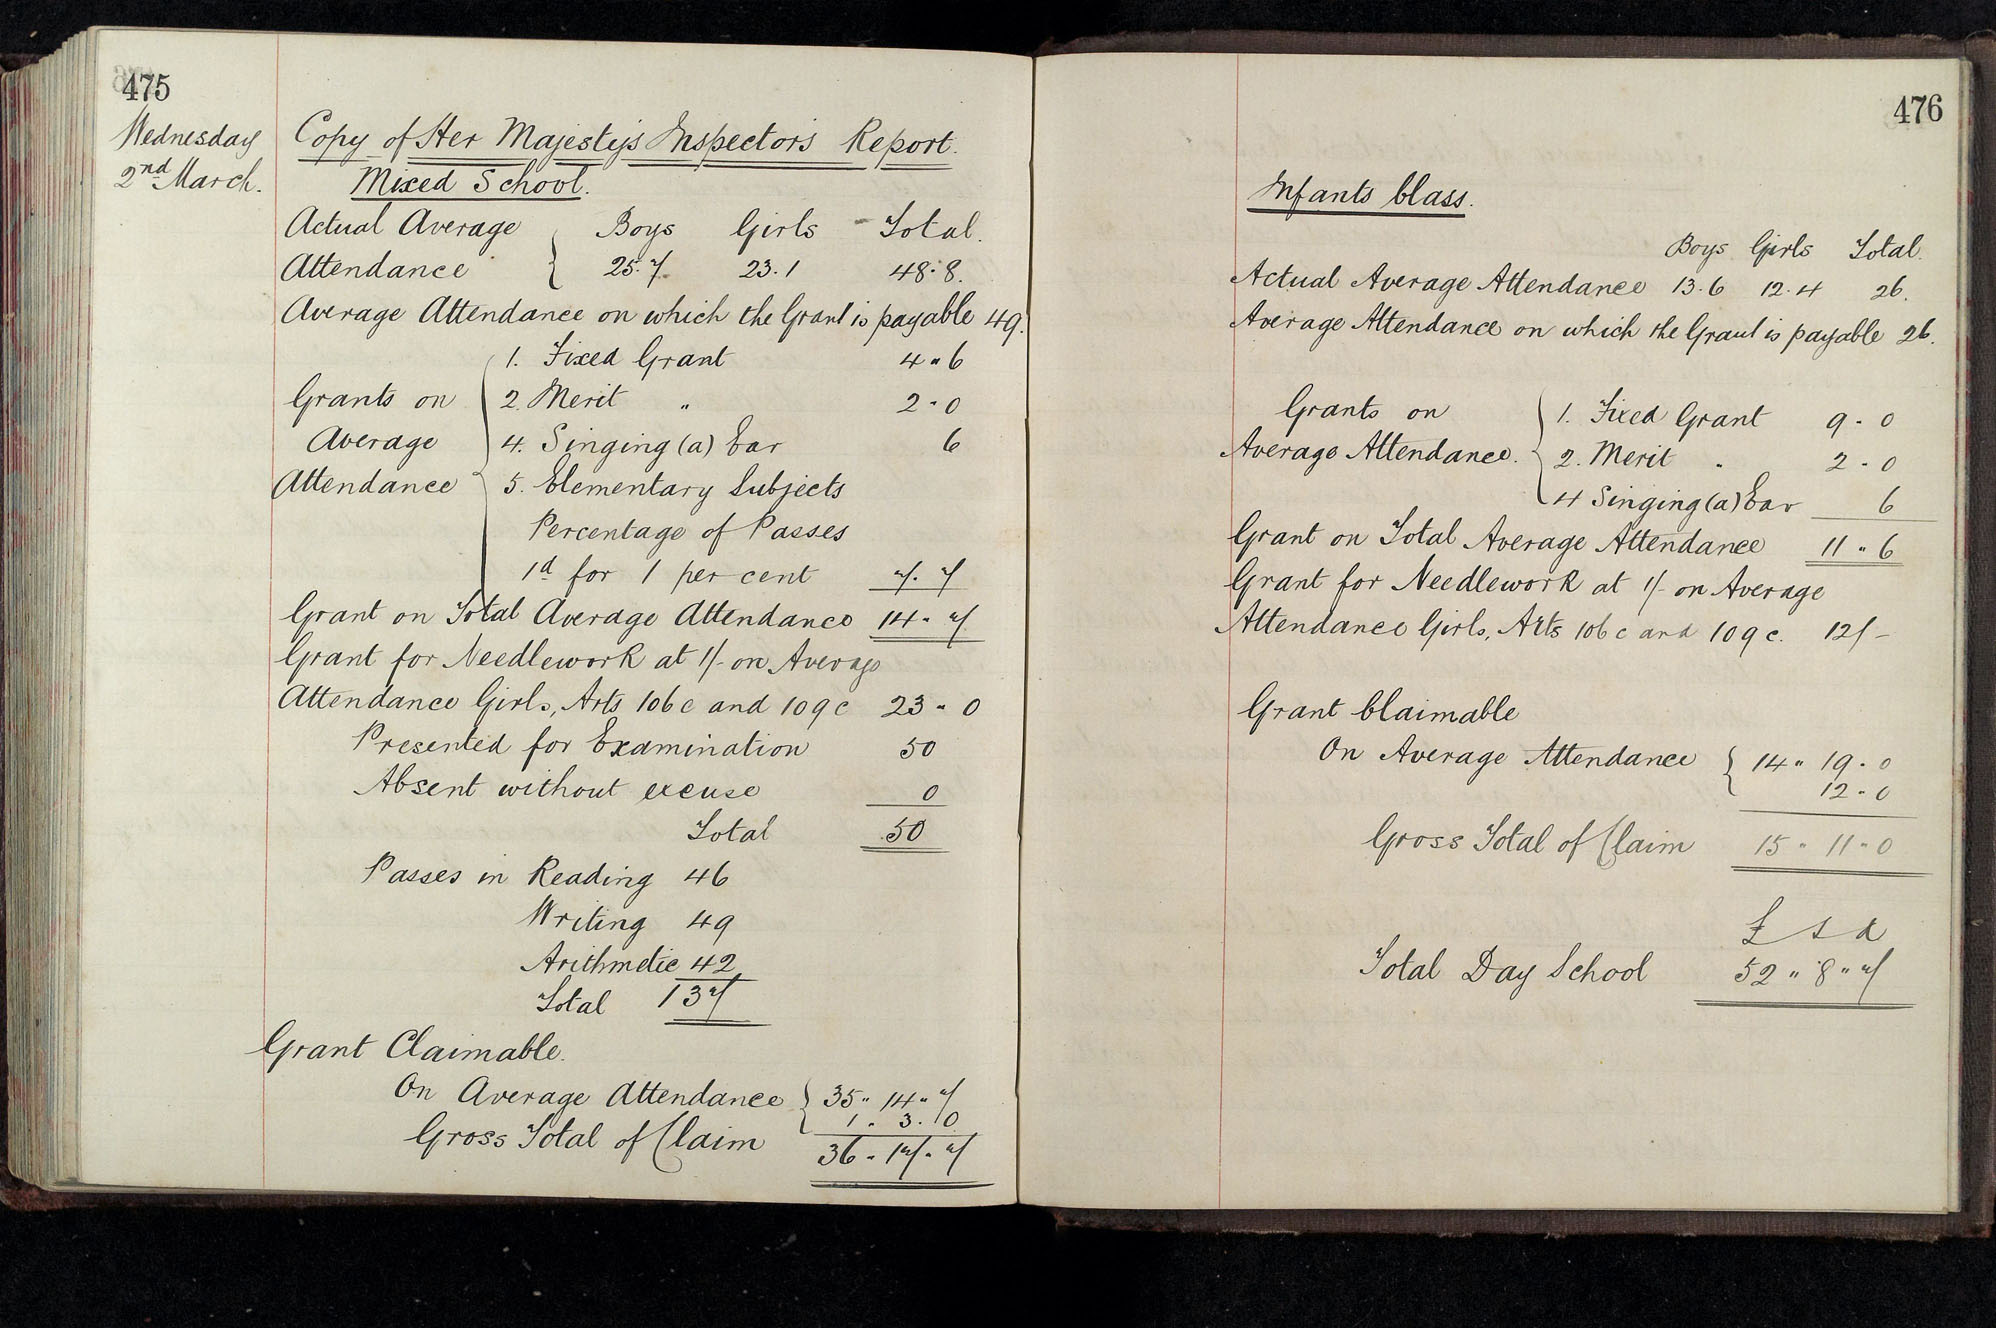 475
Wednesday
2nd March.
Copy of Her Majesty's Inspector's Report.
Mixed School.
Actual Average Boys Girls Total.
Attendance 25.7. 23.1 48.8.
Average Attendance on which the Grant is payable 49.
1. Fixed Grant 4 " 6
Grants on 2. Merit " 2 - 0
Average 4. Singing (a) Ear 6
Attendance 5. Elementary Subjects
Percentage of Passes
1d for 1 per cent 7. 7
Grant on Total Average Attendance 14 - 7
Grant for Needlework at 1/- on Average
Attendance Girls, Arts 106 c and 109 c 23 " 0
Presented for Examination 50
Absent without excuse 0
Total 50
Passes in Reading 46
Writing 49
Arithmetic 42
Total 137
Grant Claimable.
On Average Attendance 35 " 14 " 7
1 . 3. 0
Gross Total of Claim 36 - 17 - 7
476
Infants Class.
Boys Girls Total.
Actual Average Attendance 13.6 12.4 26.
Average Attendance on which the Grant is payable 26.
Grants on 1. Fixed Grant 9 - 0
Average Attendance. 2. Merit " 2 - 0
4 Singing (a) Ear 6
Grant on Total Average Attendance 11 " 6
Grant for Needlework at 1/- on Average
Attendance Girls, Arts 106 c and 109 c. 12/-
Grant Claimable
On Average Attendance 14 " 19 - 0
12 - 0
Gross Total of Claim 15 - 11 - 0
£ s d
Total Day School 52 " 8 " 7